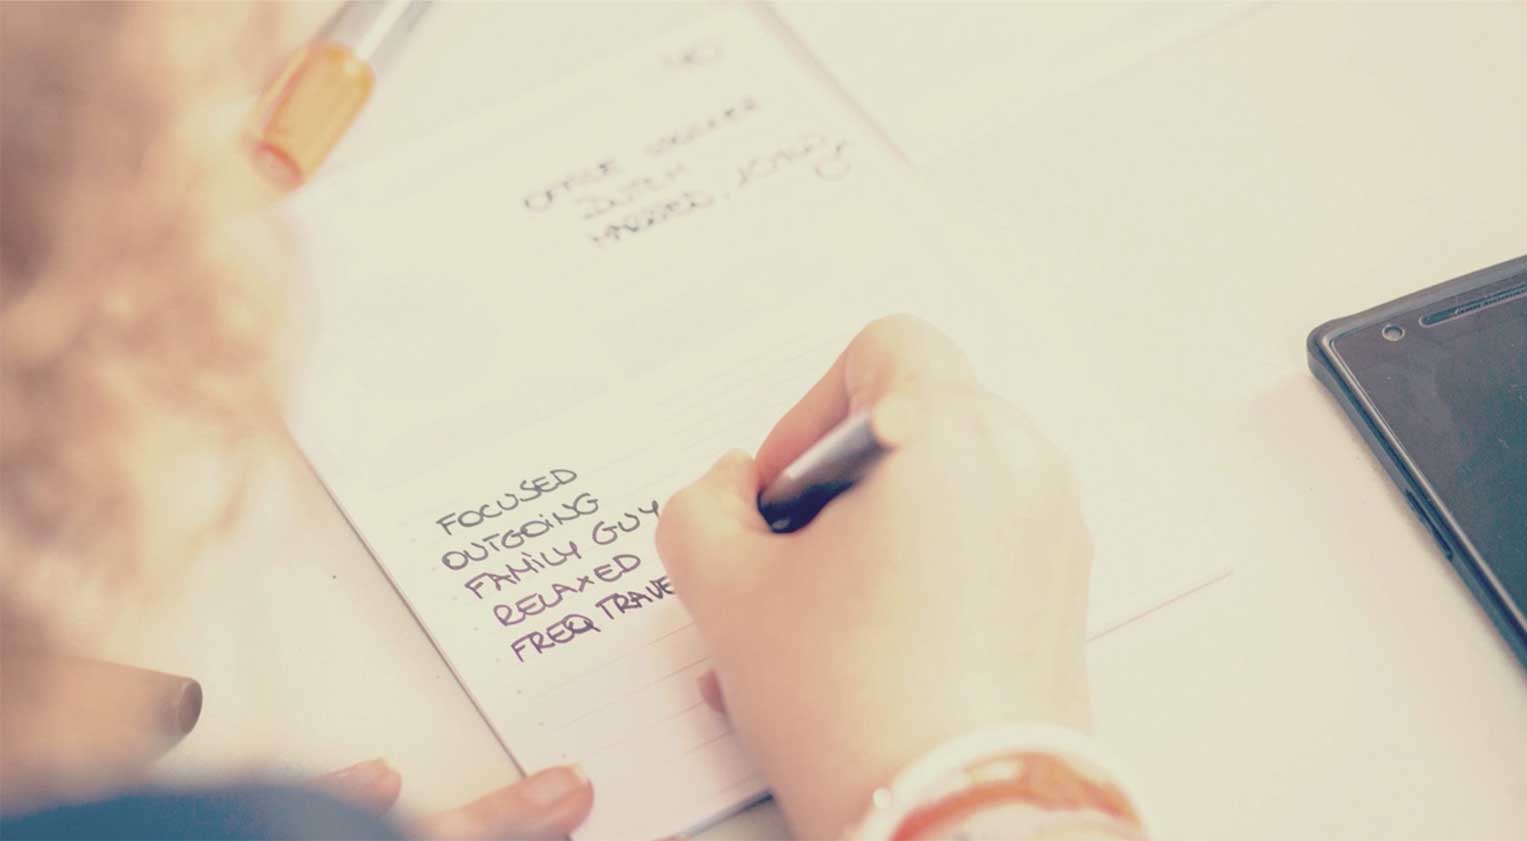 OFFICE WORKER
DUTCH
MARRIED,
FOCUSED
OUTGOING
FAMILY GUY
RELAXED
FREQ TRAVE